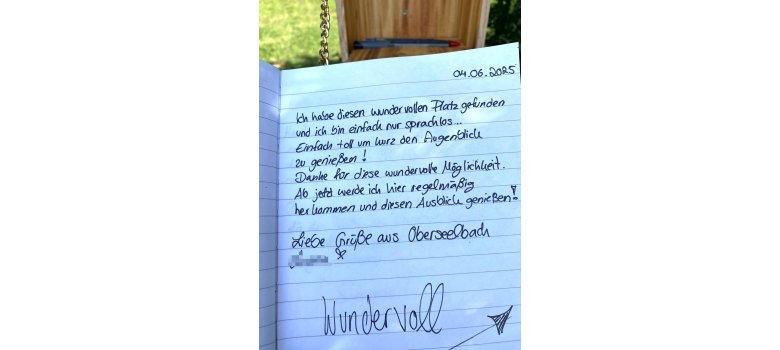 04.06.2025
Ich habe diesen wundervollen Platz gefunden
und ich bin einfach nur sprachlos...
Einfach toll um kurz den Augenblick
zu genießen!
Danke für diese wundervolle Möglichkeit.
Ab jetzt werde ich hier regelmäßig
herkommen und diesen Ausblick genießen!
Liebe Grüße aus Oberseelbach
Wundervoll